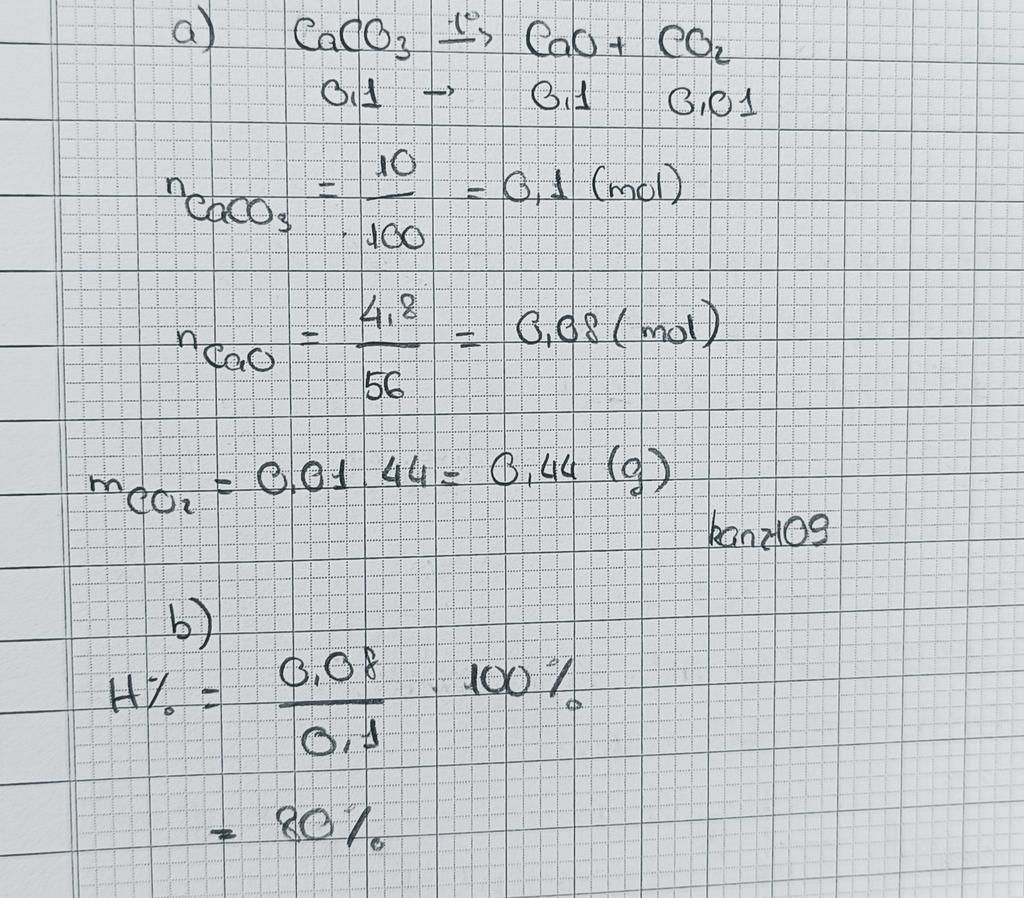 a) CaCO₃ —t°→ CaO + CO₂
0,1 → 0,1 0,01
nCaCO₃ = 10/100 = 0,1 (mol)
nCaO = 4,8/56 = 0,08 (mol)
mCO₂ = 0,01.44 = 0,44 (g)
kanz109
b)
H% = 0,08/0,1 . 100%
= 80%